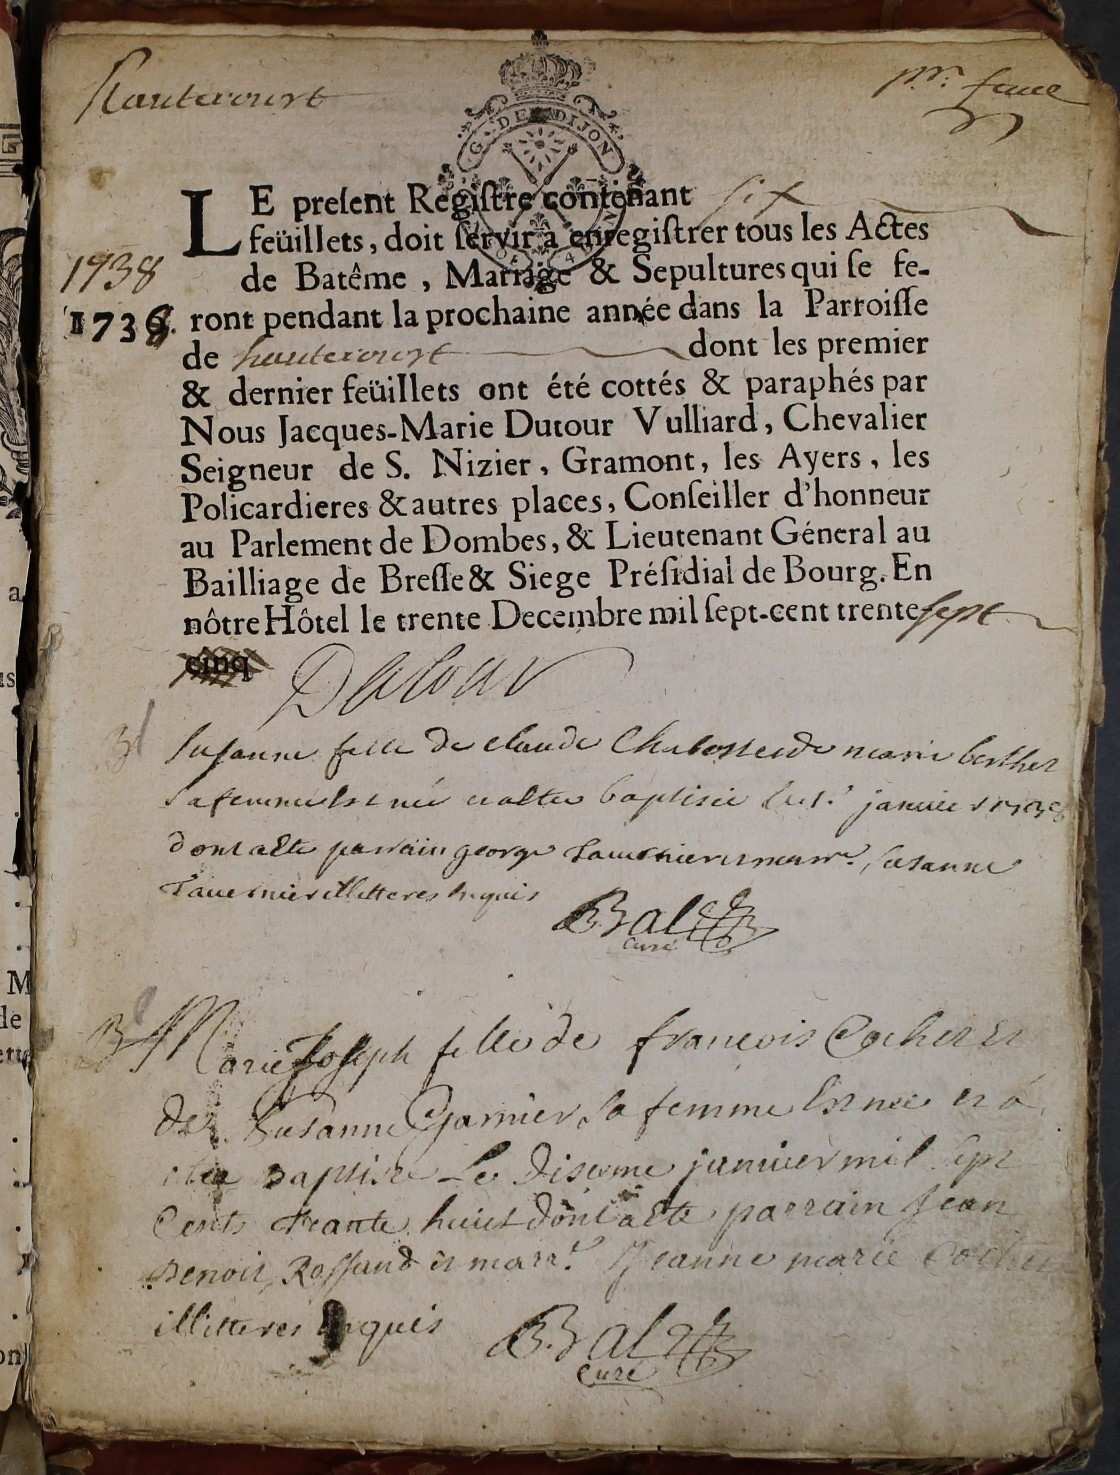 hautecourt
pr. feuil
G. DE DIJON
LE present Registre contenant six
feüillets, doit servir à enregistrer tous les Actes
1738
de Batême, Mariage & Sepultures qui se fe-
1736. ront pendant la prochaine année dans la Parroisse
de hautecourt dont les premier
& dernier feüillets ont été cottés & paraphés par
Nous Jacques-Marie Dutour Vulliard, Chevalier
Seigneur de S. Nizier, Gramont, les Ayers, les
Policardieres & autres places, Conseiller d'honneur
au Parlement de Dombes, & Lieutenant Géneral au
Bailliage de Bresse & Siege Présidial de Bourg. En
nôtre Hôtel le trente Decembre mil sept-cent trente sept
cinq
Dutour
Susanne fille de claude et de marie berthet
sa femme est née et a été baptisée le janvier 1738
dont acte parrain george tavernier et marr.e susanne
tavernier illitteres enquis
B Bal
curé
B
Marie Joseph fille de francois Cochet et
de Susanne Garnier sa femme est nee et a
été baptisée Le disieme janvier mil sept
cents trante huict dont acte parrain Jean
Benoit Rossand et marr.e Jeanne marie Cochet
illitteres enquis
B. Bal
Curé